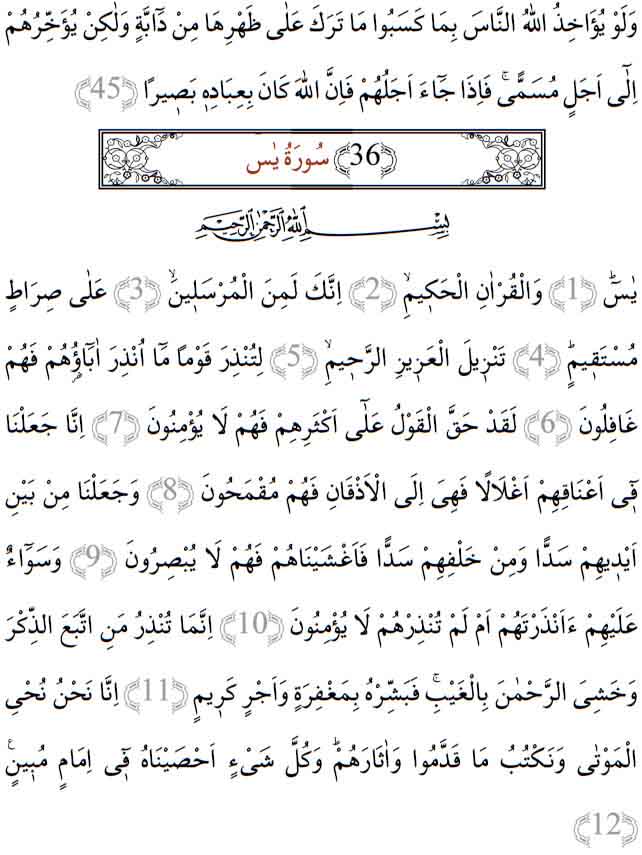 وَلَوْ يُؤَاخِذُ اللّٰهُ النَّاسَ بِمَا كَسَبُوا مَا تَرَكَ عَلٰى ظَهْرِهَا مِنْ دَٓابَّةٍ وَلٰكِنْ يُؤَخِّرُهُمْ
اِلٰٓى اَجَلٍ مُسَمًّىۚ فَاِذَا جَٓاءَ اَجَلُهُمْ فَاِنَّ اللّٰهَ كَانَ بِعِبَادِه۪ بَص۪يرًا ﴿45﴾
﴿36﴾ سُورَةُ يٰس
بِسْمِ اللّٰهِ الرَّحْمٰنِ الرَّحِيمِ
يٰسٓۜ ﴿1﴾ وَالْقُرْاٰنِ الْحَك۪يمِۙ ﴿2﴾ اِنَّكَ لَمِنَ الْمُرْسَل۪ينَۙ ﴿3﴾ عَلٰى صِرَاطٍ
مُسْتَق۪يمٍۜ ﴿4﴾ تَنْز۪يلَ الْعَز۪يزِ الرَّح۪يمِۙ ﴿5﴾ لِتُنْذِرَ قَوْمًا مَٓا اُنْذِرَ اٰبَٓاؤُ۬هُمْ فَهُمْ
غَافِلُونَ ﴿6﴾ لَقَدْ حَقَّ الْقَوْلُ عَلٰٓى اَكْثَرِهِمْ فَهُمْ لَا يُؤْمِنُونَ ﴿7﴾ اِنَّا جَعَلْنَا
ف۪ٓى اَعْنَاقِهِمْ اَغْلَالًا فَهِىَ اِلَى الْاَذْقَانِ فَهُمْ مُقْمَحُونَ ﴿8﴾ وَجَعَلْنَا مِنْ بَيْنِ
اَيْد۪يهِمْ سَدًّا وَمِنْ خَلْفِهِمْ سَدًّا فَاَغْشَيْنَاهُمْ فَهُمْ لَا يُبْصِرُونَ ﴿9﴾ وَسَوَٓاءٌ
عَلَيْهِمْ ءَاَنْذَرْتَهُمْ اَمْ لَمْ تُنْذِرْهُمْ لَا يُؤْمِنُونَ ﴿10﴾ اِنَّمَا تُنْذِرُ مَنِ اتَّبَعَ الذِّكْرَ
وَخَشِىَ الرَّحْمٰنَ بِالْغَيْبِۚ فَبَشِّرْهُ بِمَغْفِرَةٍ وَاَجْرٍ كَر۪يمٍ ﴿11﴾ اِنَّا نَحْنُ نُحْيِ
الْمَوْتٰى وَنَكْتُبُ مَا قَدَّمُوا وَاٰثَارَهُمْۜ وَكُلَّ شَىْءٍ اَحْصَيْنَاهُ ف۪ٓى اِمَامٍ مُب۪ينٍ۟
﴿12﴾